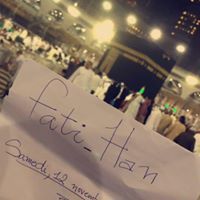 fati_Han
Samedy 12 novemb